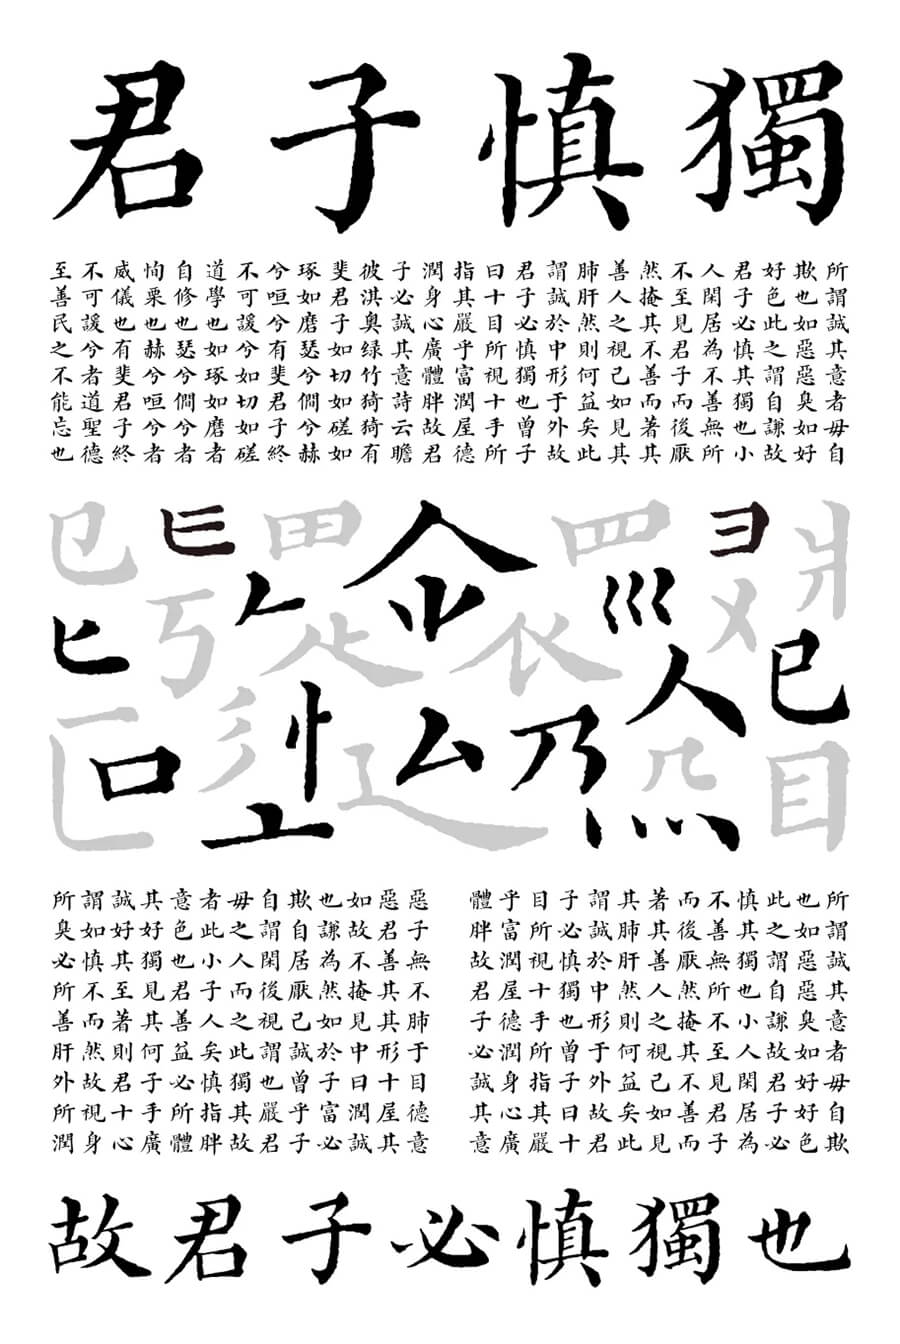 君子慎獨
所謂誠其意者毋自
欺也如惡惡臭如好
好色此之謂自謙故
君子必慎其獨也小
人閑居為不善無所
不至見君子而後厭
然掩其不善而著其
善人之視己如見其
肺肝然則何益矣此
謂誠於中形于外故
君子必慎獨也曾子
曰十目所視十手所
指其嚴乎富潤屋德
潤身心廣體胖故君
子必誠其意詩云瞻
彼淇奧绿竹猗猗有
斐君子如切如磋如
琢如磨瑟兮僩兮赫
兮咺兮有斐君子終
不可諼兮如切如磋
道學也如琢如磨者
自修也瑟兮僩兮者
恂栗也赫兮咺兮者
威儀也有斐君子終
不可諼兮者道聖德
至善民之不能忘也
巛
匕
人
巳
口
厶
乃
目
所謂誠其意者毋自欺也如惡惡
臭如好好色此之謂自謙故君子
必慎其獨也小人閑居為不善無
所不至見君子而後厭然掩其不
善而著其善人之視己如見其肺
肝然則何益矣此謂誠於中形于
外故君子必慎獨也曾子曰十目
所視十手所指其嚴乎富潤屋德
潤身心廣體胖故君子必誠其意
所謂誠其意者毋自欺
也如惡惡臭如好好色
此之謂自謙故君子必
慎其獨也小人閑居為
不善無所不至見君子
而後厭然掩其不善而
著其善人之視己如見
其肺肝然則何益矣此
謂誠於中形于外故君
子必慎獨也曾子曰十
目所視十手所指其嚴
乎富潤屋德潤身心廣
體胖故君子必誠其意
故君子必慎獨也